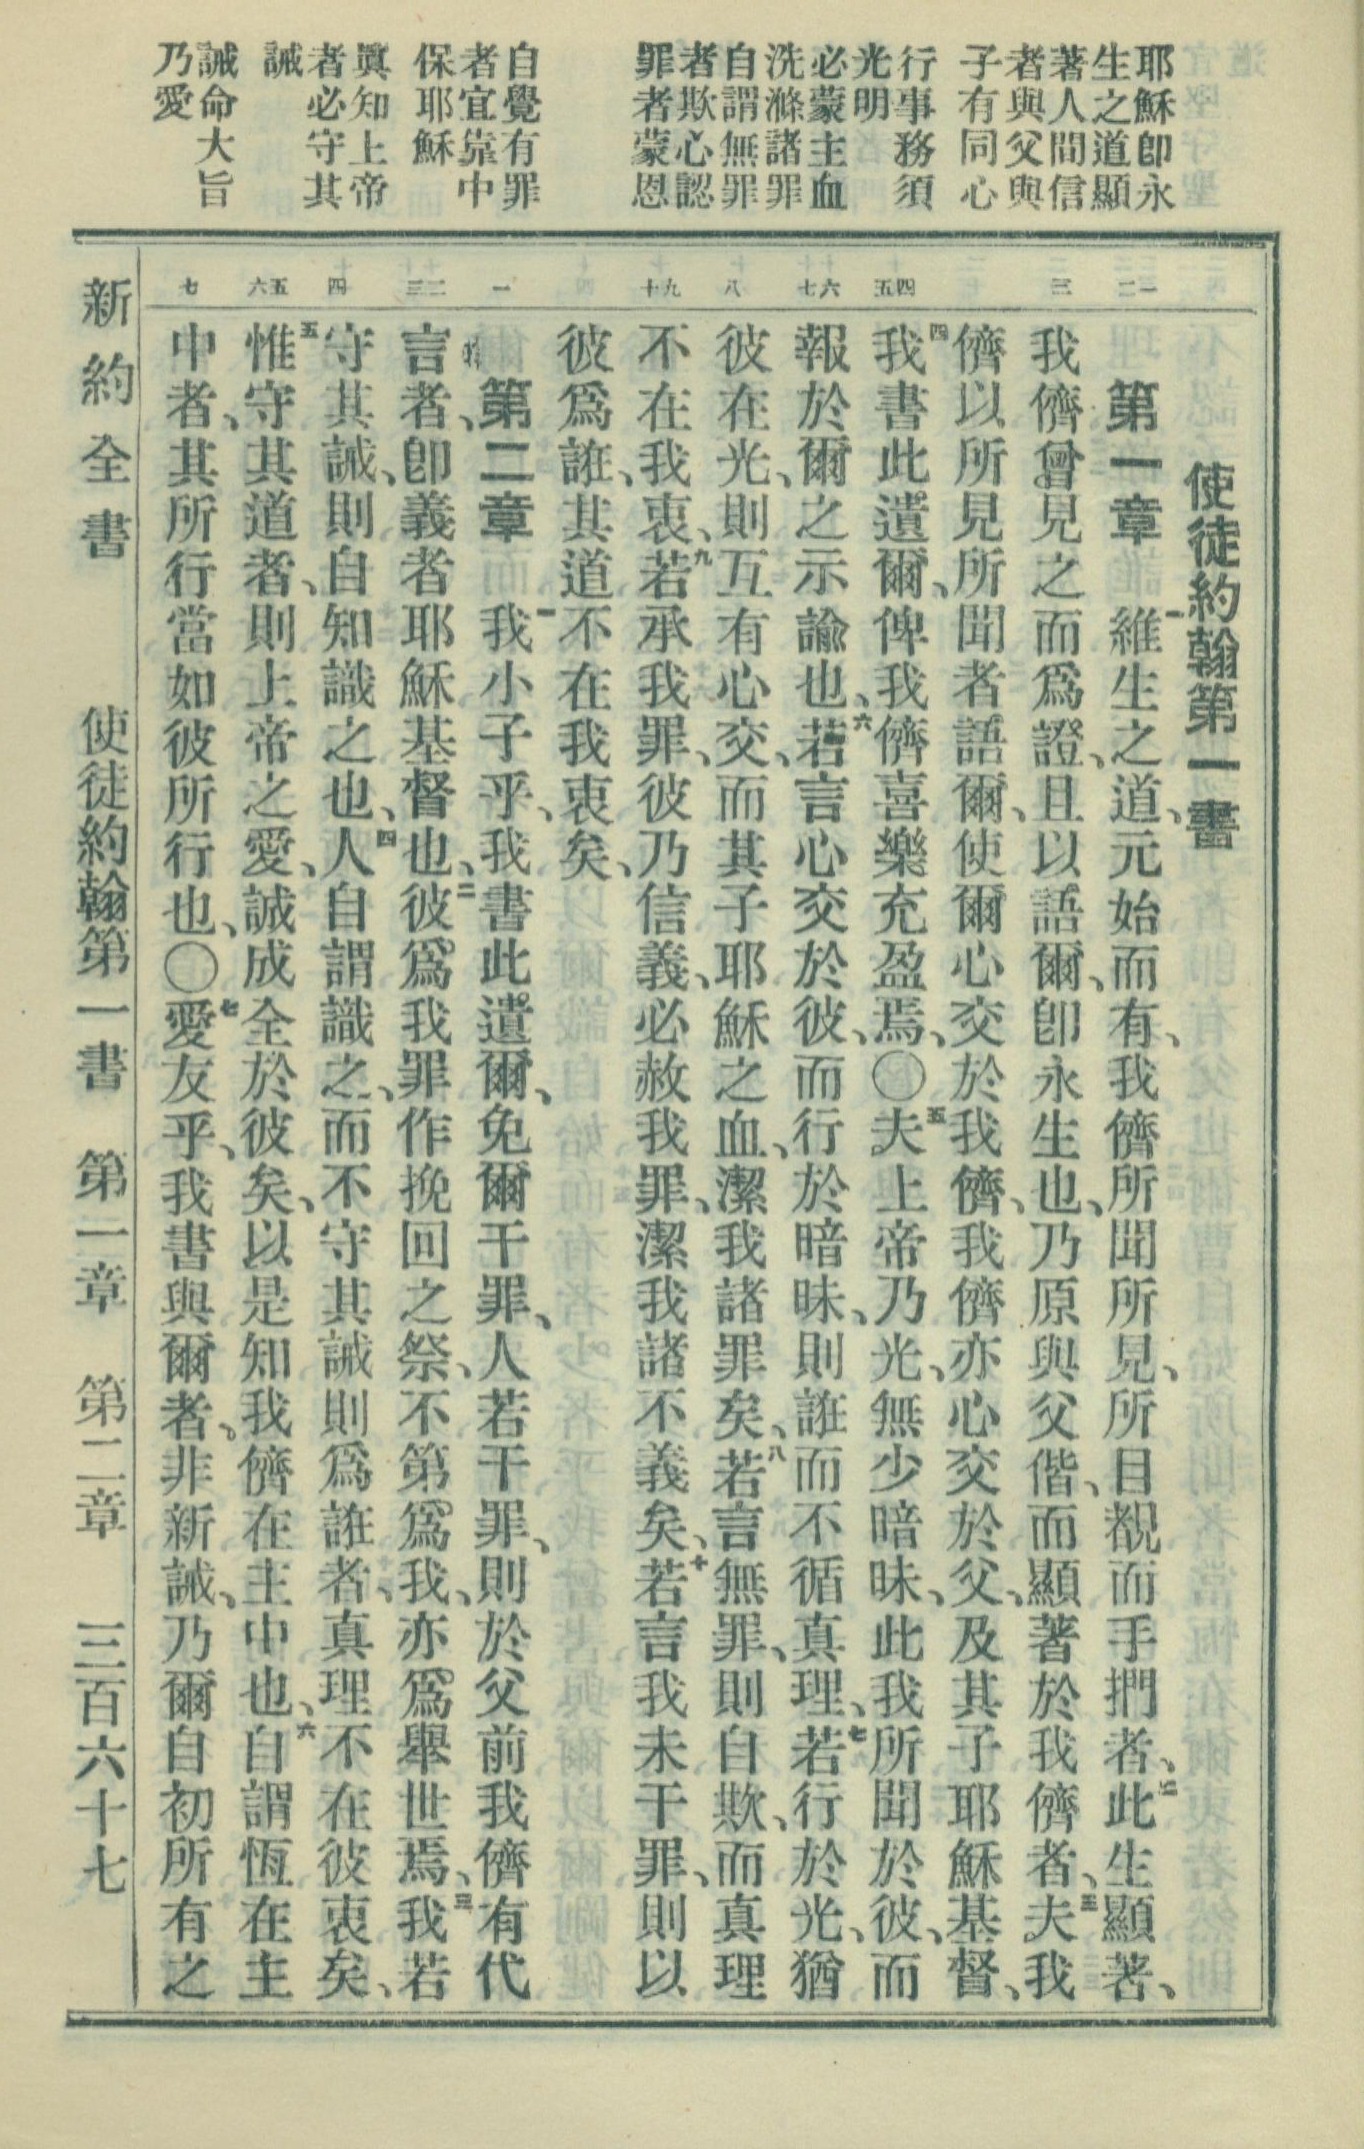 耶穌卽永
生之道顯
著人間信
者與父與
子有同心
行事務須
光明
必蒙主血
洗滌諸罪
自謂無罪
者欺心認
罪者蒙恩
自覺有罪
者宜靠中
保耶穌
眞知上帝
者必守其
誡
誡命大旨
乃愛
一二 三 四五 六七 八 九十 一 二三 四 五六 七
使徒約翰第一書
第一章 一維生之道、元始而有、我儕所聞所見、所目覩而手捫者、二此生顯著、
我儕曾見之而爲證、且以語爾、卽永生也、乃原與父偕、而顯著於我儕者、三夫我
儕以所見所聞者語爾、使爾心交於我儕、我儕亦心交於父、及其子耶穌基督、
四我書此遺爾、俾我儕喜樂充盈焉、〇五夫上帝乃光、無少暗昧、此我所聞於彼、而
報於爾之示諭也、六若言心交於彼、而行於暗昧、則誑而不循真理、七若行於光、猶
彼在光、則互有心交、而其子耶穌之血、潔我諸罪矣、八若言無罪、則自欺、而真理
不在我衷、九若承我罪、彼乃信義、必赦我罪、潔我諸不義矣、十若言我未干罪、則以
彼爲誑、其道不在我衷矣、
第二章 一我小子乎、我書此遺爾、免爾干罪、人若干罪、則於父前我儕有代
言者、卽義者耶穌基督也、二彼爲我罪作挽回之祭、不第爲我、亦爲舉世焉、三我若
守其誡、則自知識之也、四人自謂識之、而不守其誡則爲誑者、真理不在彼衷矣、
五惟守其道者、則上帝之愛、誠成全於彼矣、以是知我儕在主中也、六自謂恆在主
中者、其所行當如彼所行也、〇七愛友乎、我書與爾者、非新誡、乃爾自初所有之
新約全書 使徒約翰第一書 第一章 第二章 三百六十七